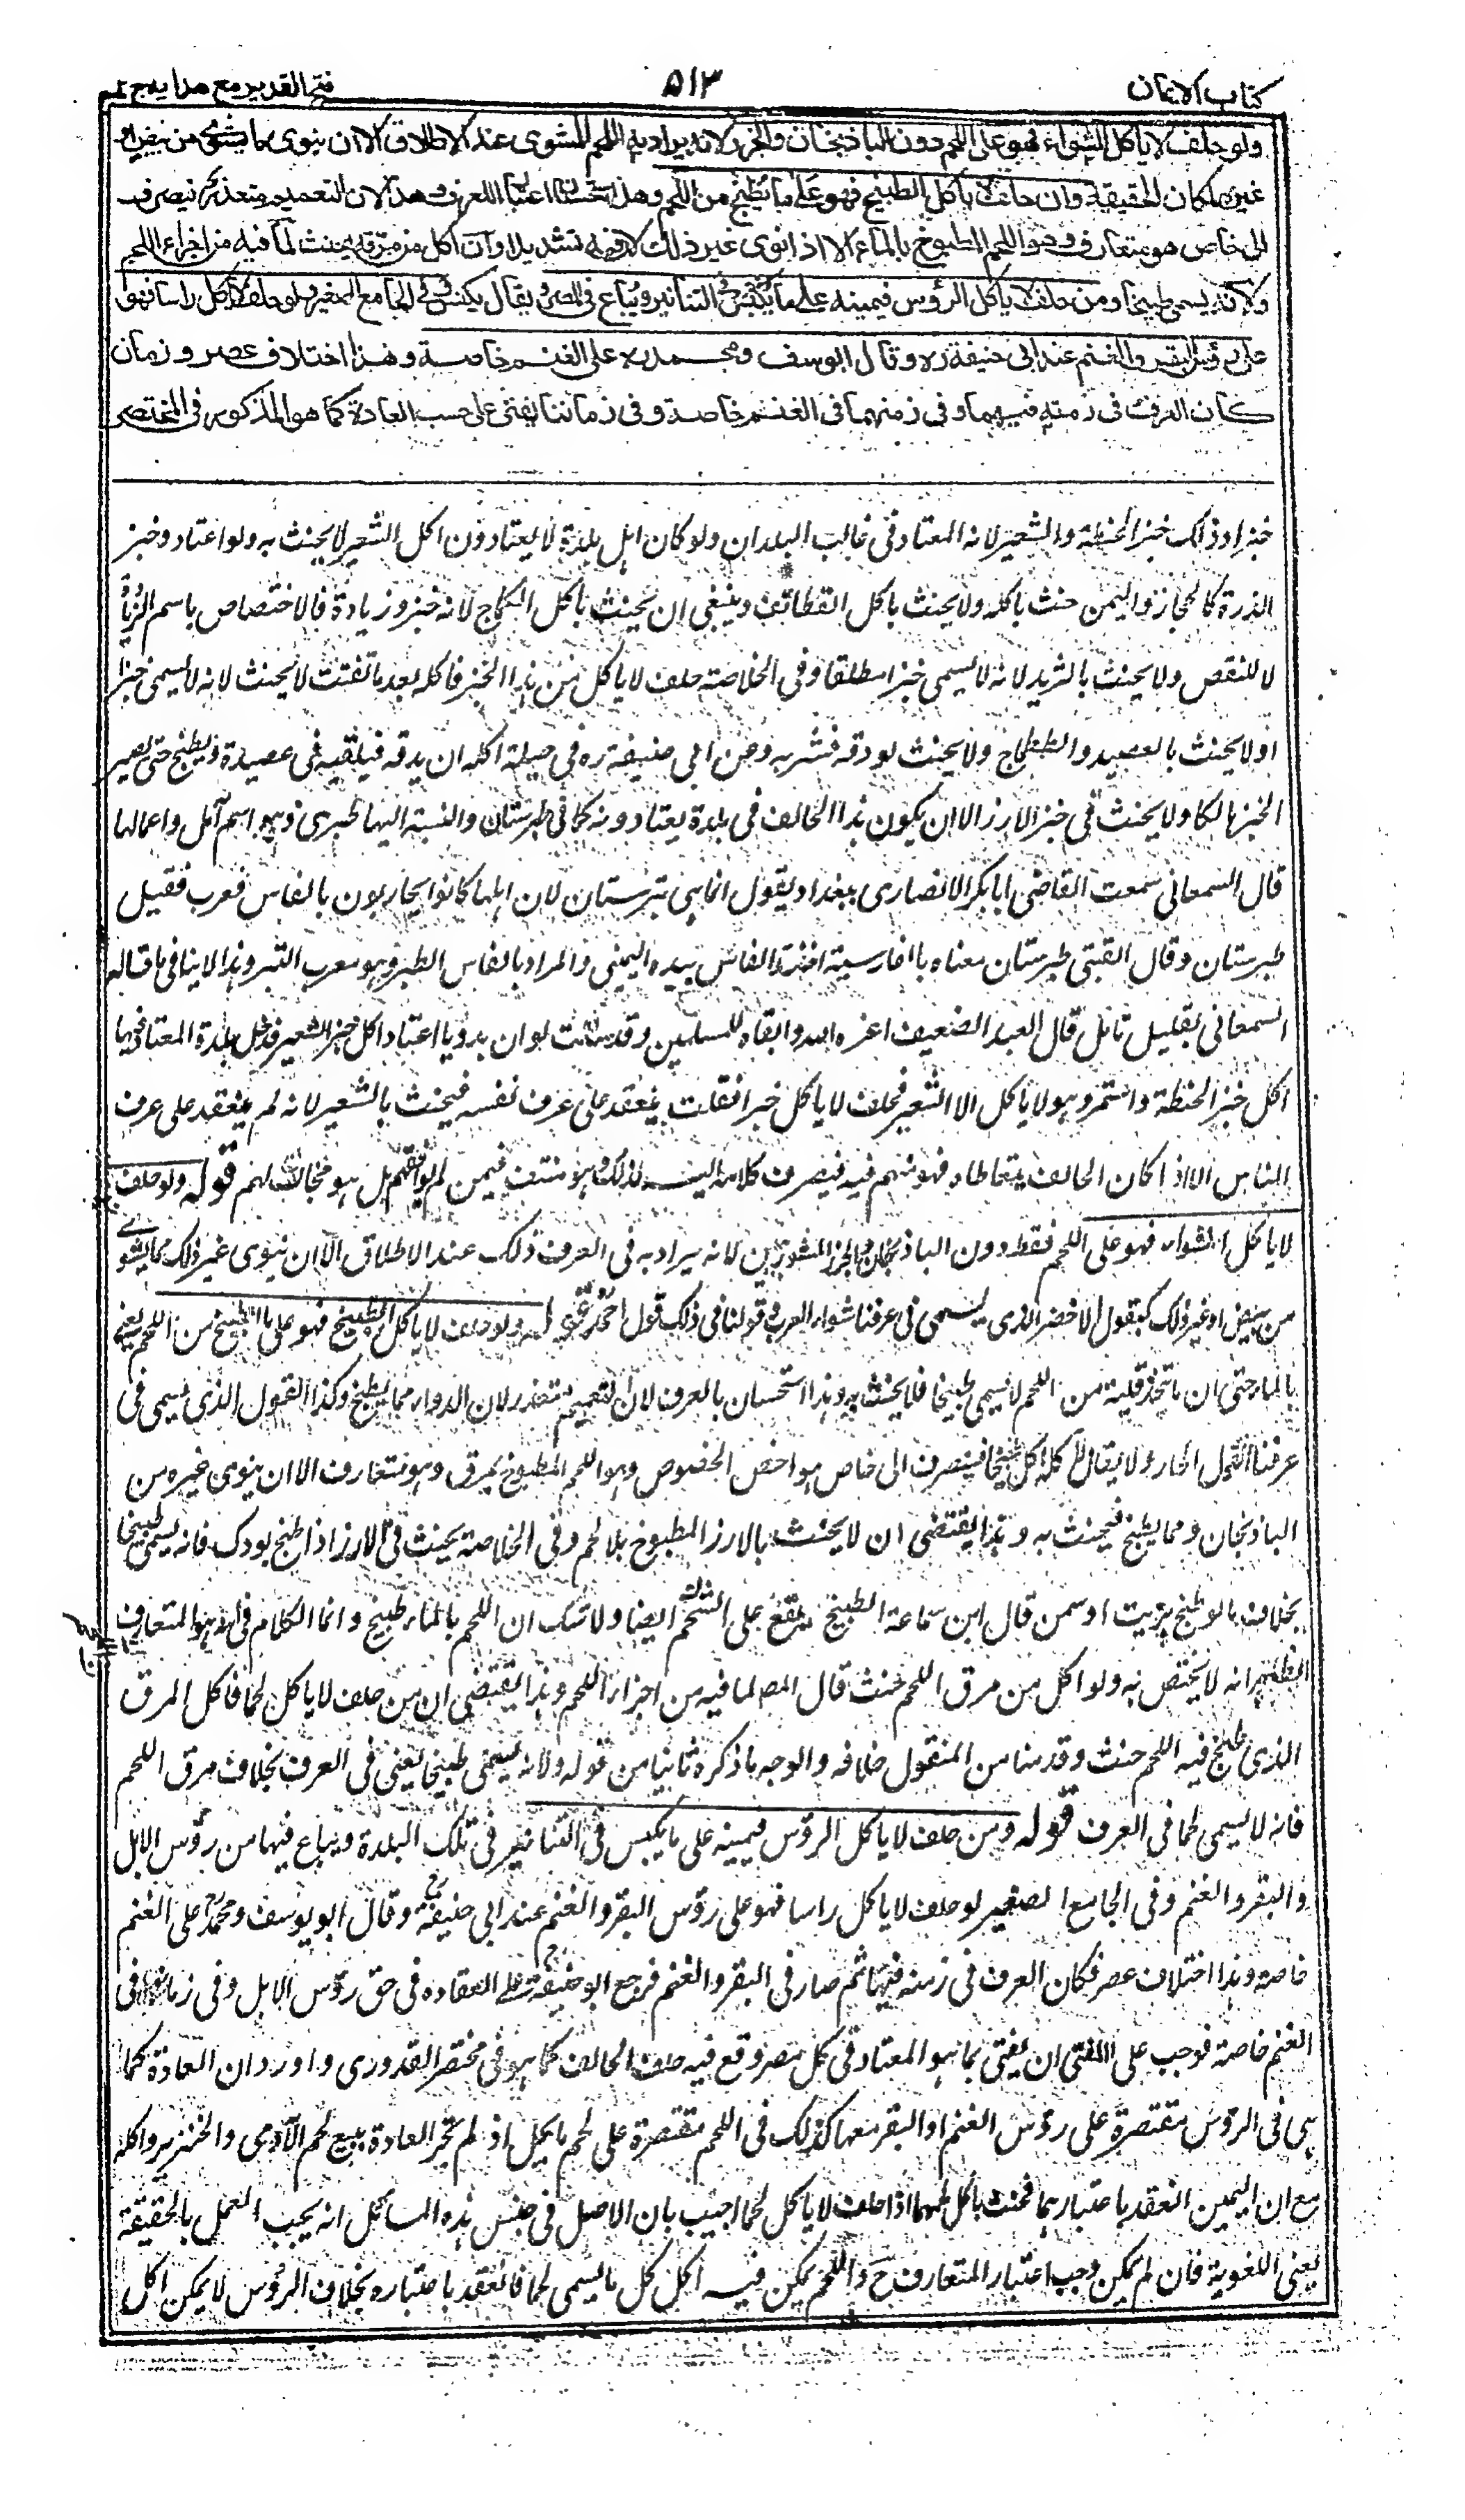 كتاب الايمان
٥١٣
فتح القدير مع هدايه ج ٢
ولو حلف لا ياكل الشواء فهو على اللحم دون الباذنجان والجزر لانه يراد به اللحم المشوى عند الاطلاق الا ان ينوى ما يشوى من بيض او
غيره لمكان الحقيقة وان حلف لا ياكل الطبيخ فهو على ما يطبخ من اللحم وهذا استحسانا اعتبارا للعرف وهذا لان التعميم متعذر فيصرف
الى خاص هو متعارف وهو اللحم المطبوخ بالماء الا اذا نوى غير ذلك لان فيه تشديدا وان اكل من مرقه يحنث لما فيه من اجزاء اللحم
ولانه يسمى طبيخا ومن حلف لا ياكل الرؤس فيمينه على ما يكبس فى التنانير ويباع فى المصر ويقال يكنس وفى الجامع الصغير ولو حلف لا ياكل راسا فهو
على رؤس البقر والغنم عند ابى حنيفة ره وقال ابو يوسف ومحمد ره على الغنم خاصة وهذا اختلاف عصر وزمان
كان العرف فى زمنه فيهما وفى زمنهما فى الغنم خاصة وفى زماننا يفتى على حسب العادة كما هو المذكور فى المختصر
خبزا وذلك خبز الحنطة والشعير لانه المعتاد فى غالب البلدان ولو كان اهل بلدة لا يعتادون اكل الشعير لا يحنث به ولو اعتادوخبز
الذرة كالحجاز واليمن حنث باكله ولا يحنث باكل القطائف وينبغى ان يحنث باكل الكماج لانه خبز وزيادة فالاختصاص باسم الزيادة
لا للنقص ولا يحنث بالثريد لانه لا يسمى خبزا مطلقا وفى الخلاصة حلف لا ياكل من هذا الخبز فاكله بعد ما تفتت لا يحنث لانه لا يسمى خبزا
او لا يحنث بالعصيد والططماج ولا يحنث لو دقه فشربه وعن ابى حنيفة ره فى حيلة اكله ان يدقه فيلقيه فى عصيدة ويطبخ حتى يصير
الخبز هالكا ولا يحنث فى خبز الارز الا ان يكون هذا الحالف فى بلدة يعتادونه كما فى طبرستان والنسبة اليها طبرى وهو اسم آمل واعمالها
قال السمعانى سمعت القاضى ابا بكر الانصارى ببغداد يقول انما هى تبرستان لان اهلها كانوا يحاربون بالفاس فعرب فقيل
طبرستان وقال القتبى طبرستان معناه بالفارسية اخذه الفاس بيده اليمنى والمراد بالفاس الطبر وهو معرب التبر وهذا لا ينافى ما قاله
السمعانى بقليل تامل قال العبد الضعيف اعزه الله وابقاه للمسلمين وقد سئلت لو ان بدويا اعتاد اكل خبز الشعير فدخل بلدة المعتاد فيها
اكل خبز الحنطة واستمر وهو لا ياكل الا الشعير فحلف لا ياكل خبزا فقلت ينعقد على عرف نفسه فيحنث بالشعير لانه لم ينعقد على عرف
الناس الا اذا كان الحالف يتعاطاه فهو منهم فيه فيصرف كلامه اليه لذلك وهو منتف فيمن لم يوافقهم بل هو مخالف لهم قوله ولو حلف
لا ياكل الشواء فهو على اللحم فقط دون الباذنجان والجزر المشويين لانه يراد به فى العرف ذلك عند الاطلاق الا ان ينوى غير ذلك مما يشوى
من بيض او غير ذلك كبقول الاخضر الذى يسمى فى عرفنا شواء العرب وقولنا فى ذلك قول احمد قوله ولو حلف لا ياكل الطبيخ فهو على ما يطبخ من اللحم يعنى
بالماء حتى ان ما يتخذ قلية من اللحم لا يسمى طبيخا فلا يحنث به وهذا استحسان بالعرف لان التعميم متعذر لان الدواء مما يطبخ وكذا القول الذى يسمى فى
عرفنا الفول الحار ولا يقال لآكله اكل طبيخا فينصرف الى خاص هو اخص الخصوص وهو اللحم المطبوخ بمرق وهو متعارف الا ان ينوى غيره من
الباذنجان ومما يطبخ فيحنث به وهذا يقتضى ان لا يحنث بالارز المطبوخ بلا لحم وفى الخلاصة يحنث فى الارز اذا طبخ بودك فانه يسمى طبيخا
بخلاف ما لو طبخ بزيت او سمن قال ابن سماعة الطبيخ يقع على الشحم ايضا ولا شك ان اللحم بالماء طبيخ وانما الكلام فى انه هو المتعارف
الظاهر انه لا يختص به ولو اكل من مرق اللحم حنث قال المص لما فيه من اجزاء اللحم وهذا يقتضى ان من حلف لا ياكل لحما فاكل المرق
الذى طبخ فيه اللحم حنث وقد منا من المنقول خلافه والوجه ما ذكره ثانيا من قوله ولانه يسمى طبيخا يعنى فى العرف بخلاف مرق اللحم
فانه لا يسمى لحما فى العرف قوله ومن حلف لا ياكل الرؤس فيمينه على ما يكبس فى التنانير فى تلك البلدة ويباع فيها من رؤس الابل
والبقر والغنم وفى الجامع الصغير لو حلف لا ياكل راسا فهو على رؤس البقر والغنم عند ابى حنيفة رح وقال ابو يوسف ومحمد رح على الغنم
خاصة وهذا اختلاف عصر فكان العرف فى زمنه فيها ثم صار فى البقر والغنم فرجع ابو حنيفة رح على انعقاده فى حق رؤس الابل وفى زمانهما فى
الغنم خاصة فوجب على المفتى ان يفتى بما هو المعتاد فى كل مصر وقع فيه حلف الحالف كما هو فى مختصر القدورى واورد ان العادة كما
هى فى الرؤس مقتصرة على رؤس الغنم او البقر معها كذلك فى اللحم مقتصرة على لحم ما يحل اذ لم تجر العادة ببيع لحم الآدمى والخنزير واكله
مع ان اليمين انعقد باعتبارهما فحنث باكل لحمهما اذا حلف لا ياكل لحما اجيب بان الاصل فى جنس هذه المسائل انه يجب العمل بالحقيقة
يعنى اللغوية فان لم يمكن وجب اعتبار المتعارف ح واللحم يمكن فيه اكل كل ما يسمى لحما فانعقد باعتباره بخلاف الرؤس لا يمكن اكل